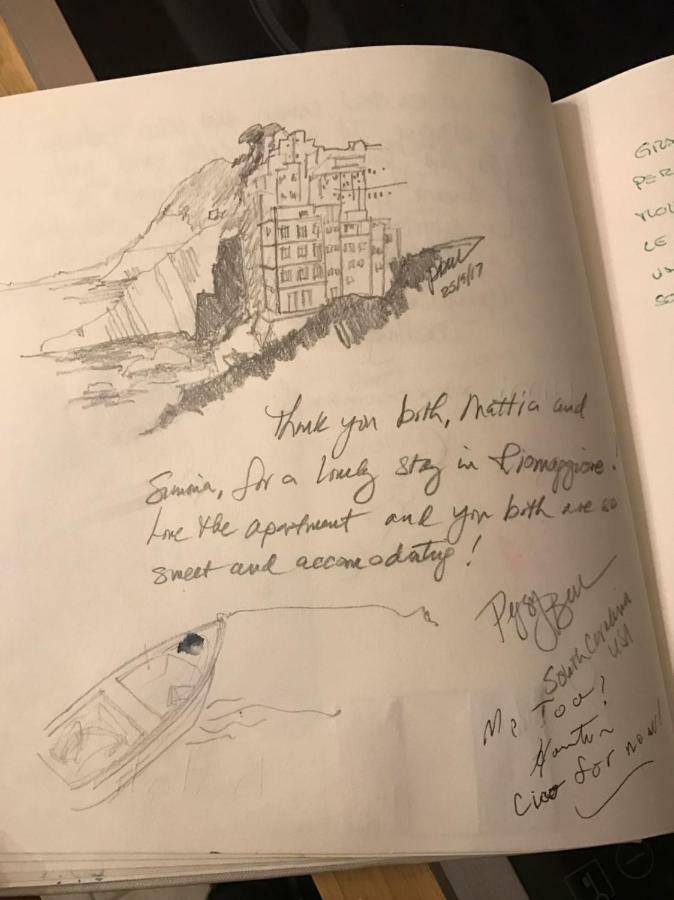 25/9/17
Thank you both, Mattia and
Simona, for a lovely stay in Riomaggiore!
Love the apartment and you both are so
sweet and accomodating!
Peggy
South Carolina
USA
Me Too!
Ciao for now!
GRA
PER
LE